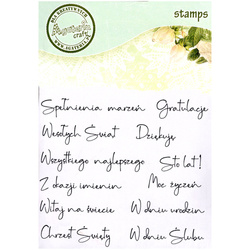 stamps
Spełnienia marzeń Gratulacje
Wesołych Świąt Dziękuję
Wszystkiego najlepszego Sto lat!
Z okazji imienin Moc życzeń
Witaj na świecie W dniu urodzin
Chrzest Święty W dniu Ślubu